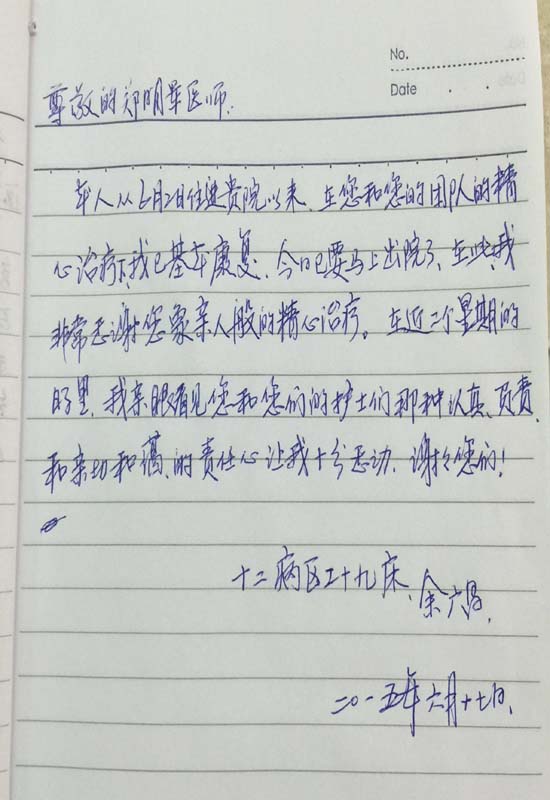 No.
Date . .
尊敬的郑明军医师:
本人从6月2日住进贵院以来、在您和您的团队的精
心治疗下,我已基本康复、今日已要马上出院了、在此,我
非常感谢您象亲人般的精心治疗。在近二个星期的
时里,我亲眼看见您和您们的护士们那种认真、负责、
和亲切和蔼、的责任心让我十分感动、谢谢您们!
十二病区二十九床、余六昌、
二〇一五年六月十七日、